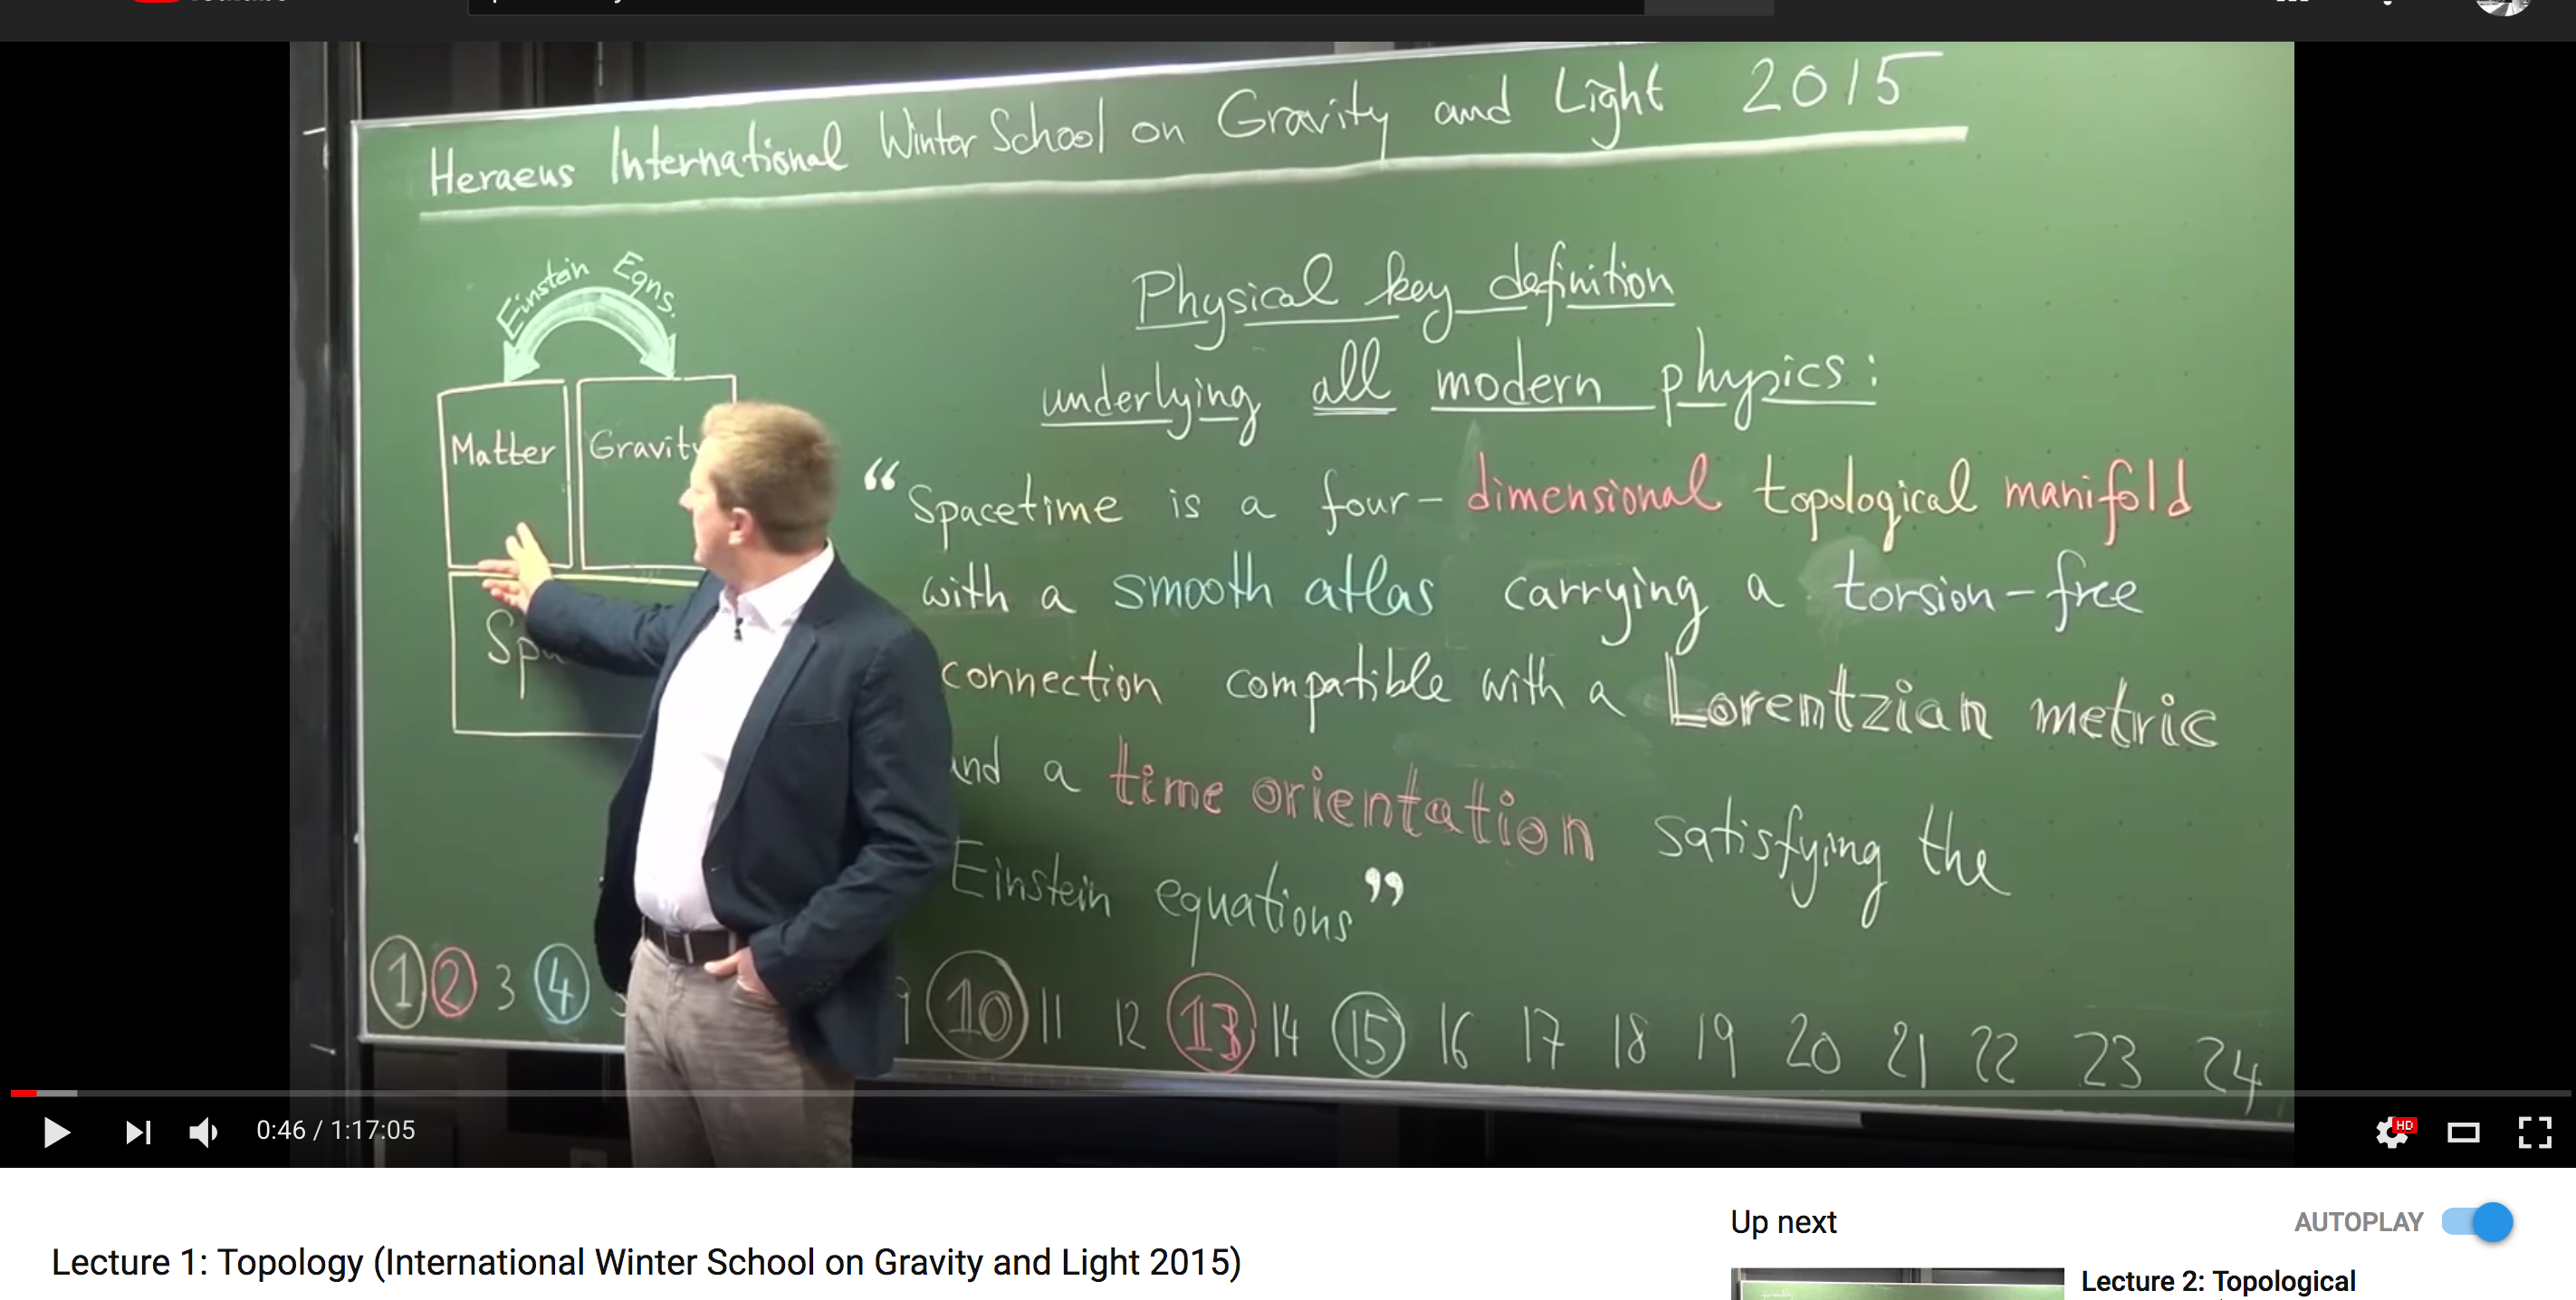 Heraeus International Winter School on Gravity and Light 2015
Einstein Eqns.
Matter
Gravity
Physical key definition
underlying all modern physics:
“Spacetime is a four-dimensional topological manifold
with a smooth atlas carrying a torsion-free
connection compatible with a Lorentzian metric
and a time orientation satisfying the
Einstein equations”
1 2 3 4 9 10 11 12 13 14 15 16 17 18 19 20 21 22 23 24
0:46 / 1:17:05
HD
Up next
AUTOPLAY
Lecture 1: Topology (International Winter School on Gravity and Light 2015)
Lecture 2: Topological